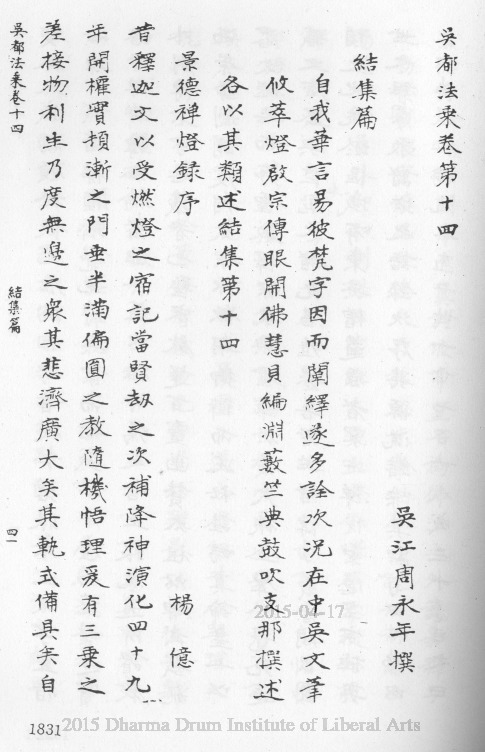 吳都法乘卷第十四
吳江周永年撰
結集篇
自我華言易彼梵字因而闡繹遂多詮次況在中吳文筆
攸萃燈啟宗傳眼開佛慧貝編淵藪竺典鼓吹支那撰述
各以其類述結集第十四
景德禅燈録序
楊億
昔釋迦文以受燃燈之宿記當賢劫之次補降神演化四十九
年開權實頓漸之門垂半滿偏圓之教隨機悟理爰有三乘之
差接物利生乃度無邊之衆其悲濟廣大矣其軌式備具矣自
吳都法乘卷十四
結集篇
四一
1831
2015-04-17
2015 Dharma Drum Institute of Liberal Arts